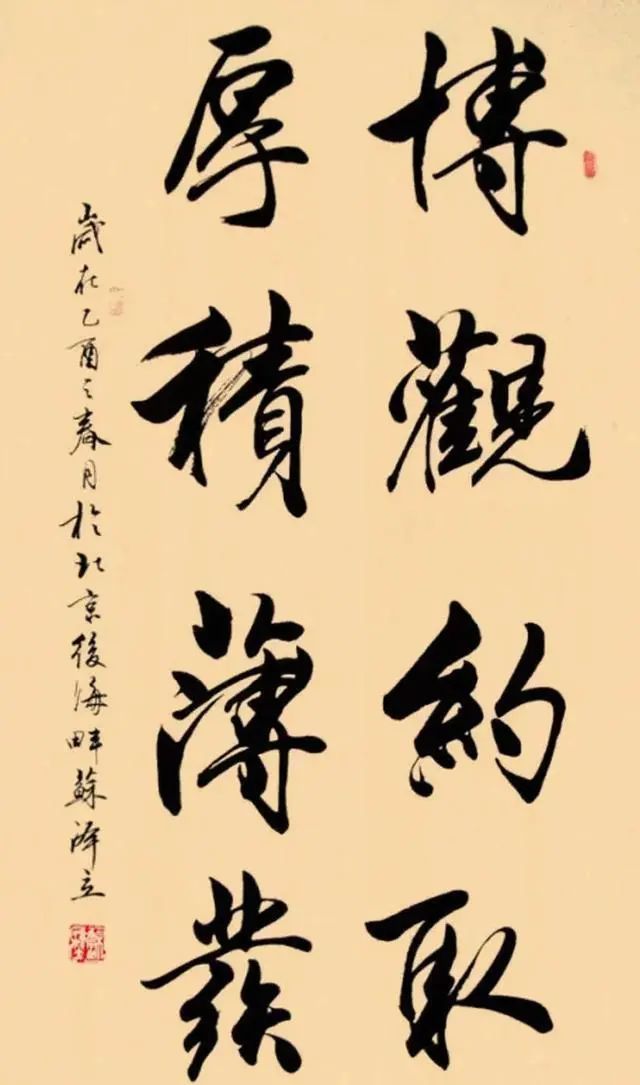 博觀約取
厚積薄發
歲在乙酉之春月於北京後海畔蘇澤立